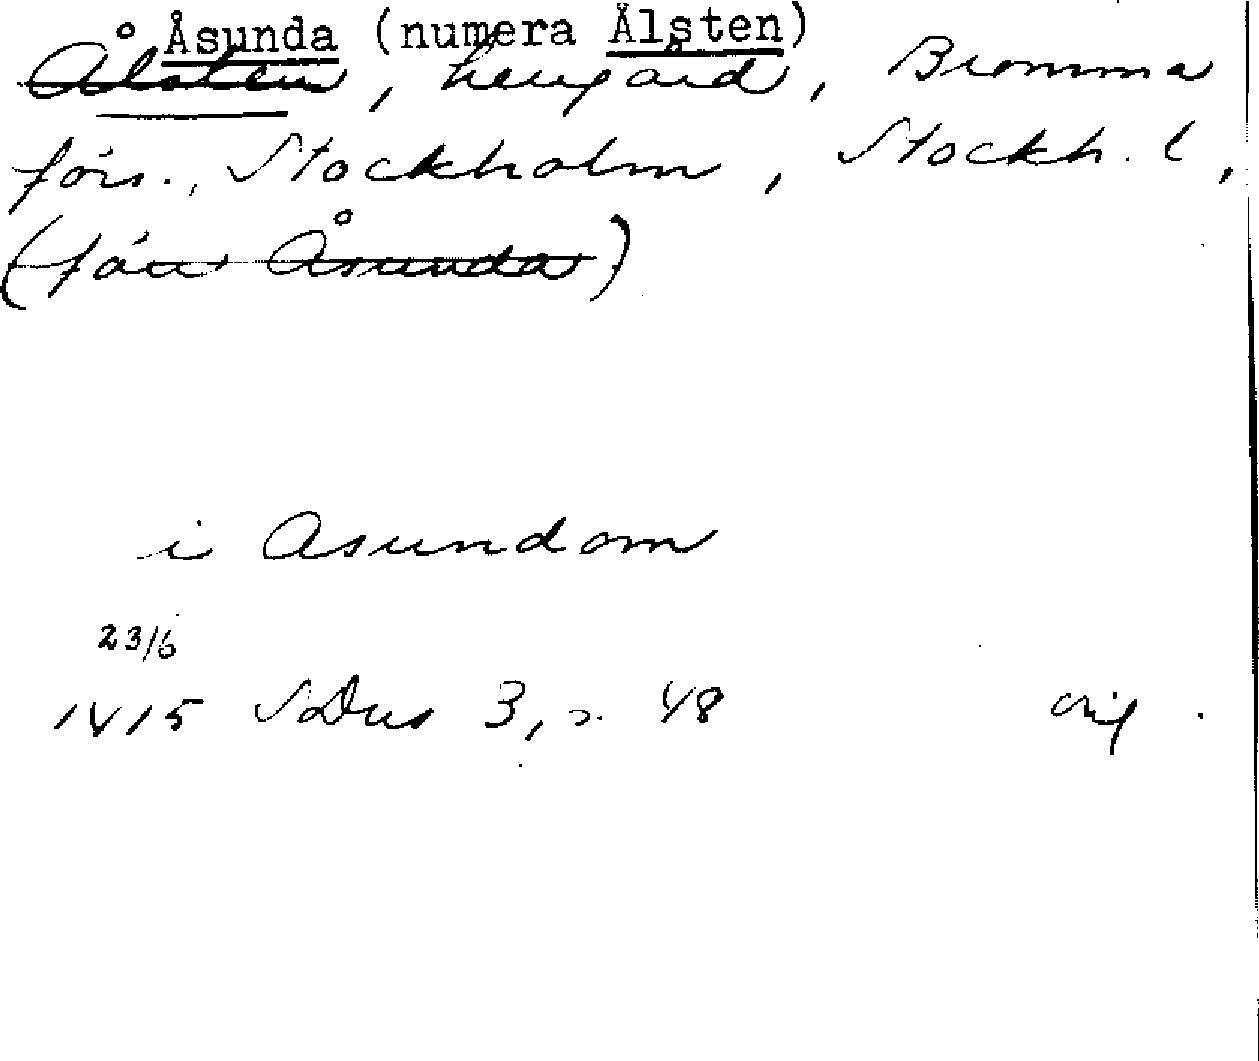 Åsunda (numera Älsten)
Ålsten, herrgård, Bromma
förs., Stockholm, Stockh. l,
(förr Åsunda)
i Asundom
23/6
1415 SDns 3, s. 48 orig.